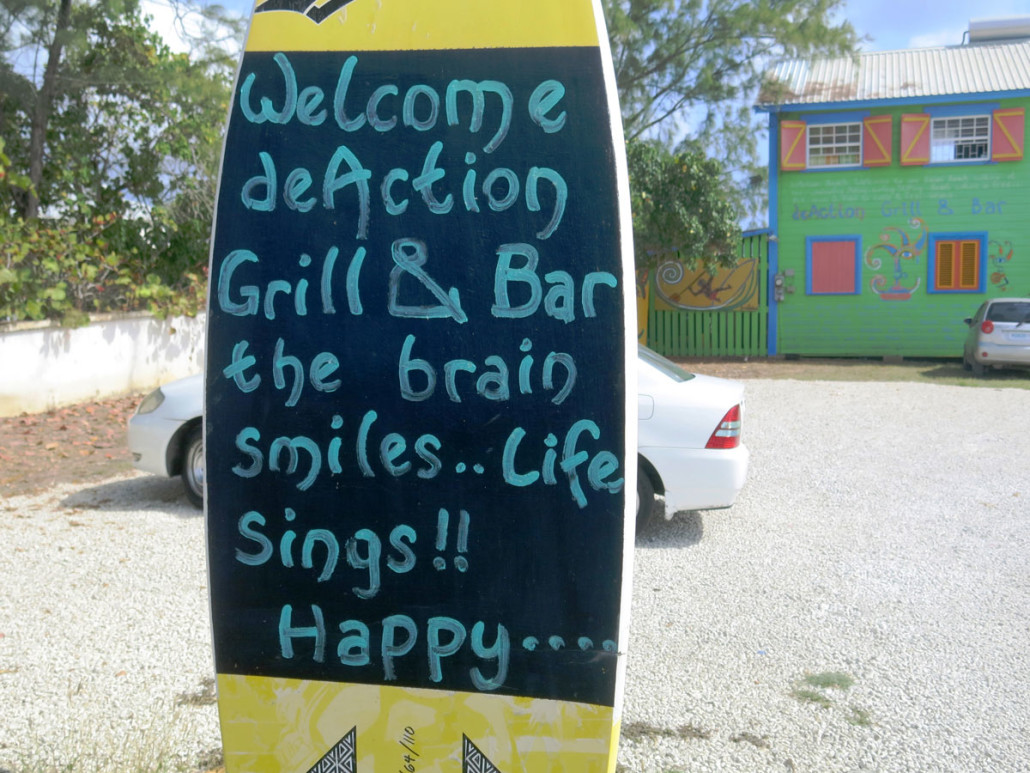 Welcome
deAction
Grill & Bar
the brain
smiles.. Life
Sings!!
Happy.....
deAction Grill & Bar